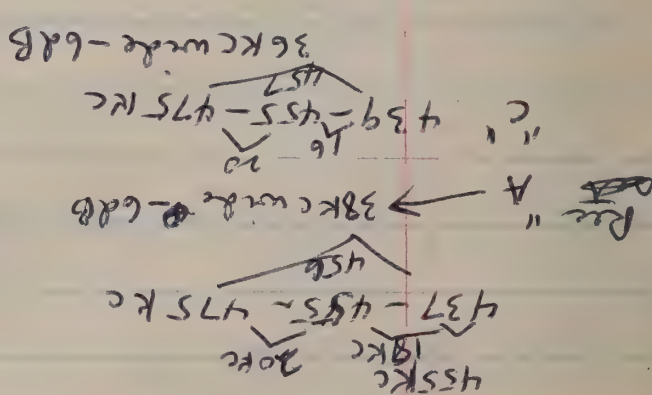 455KC
18KC 20KC
437 - 455 - 475 KC
456
Rec "A" → 38KC wide -6dB
16 20
"C" 439 - 455 - 475 KC
457
36KC wide -6dB